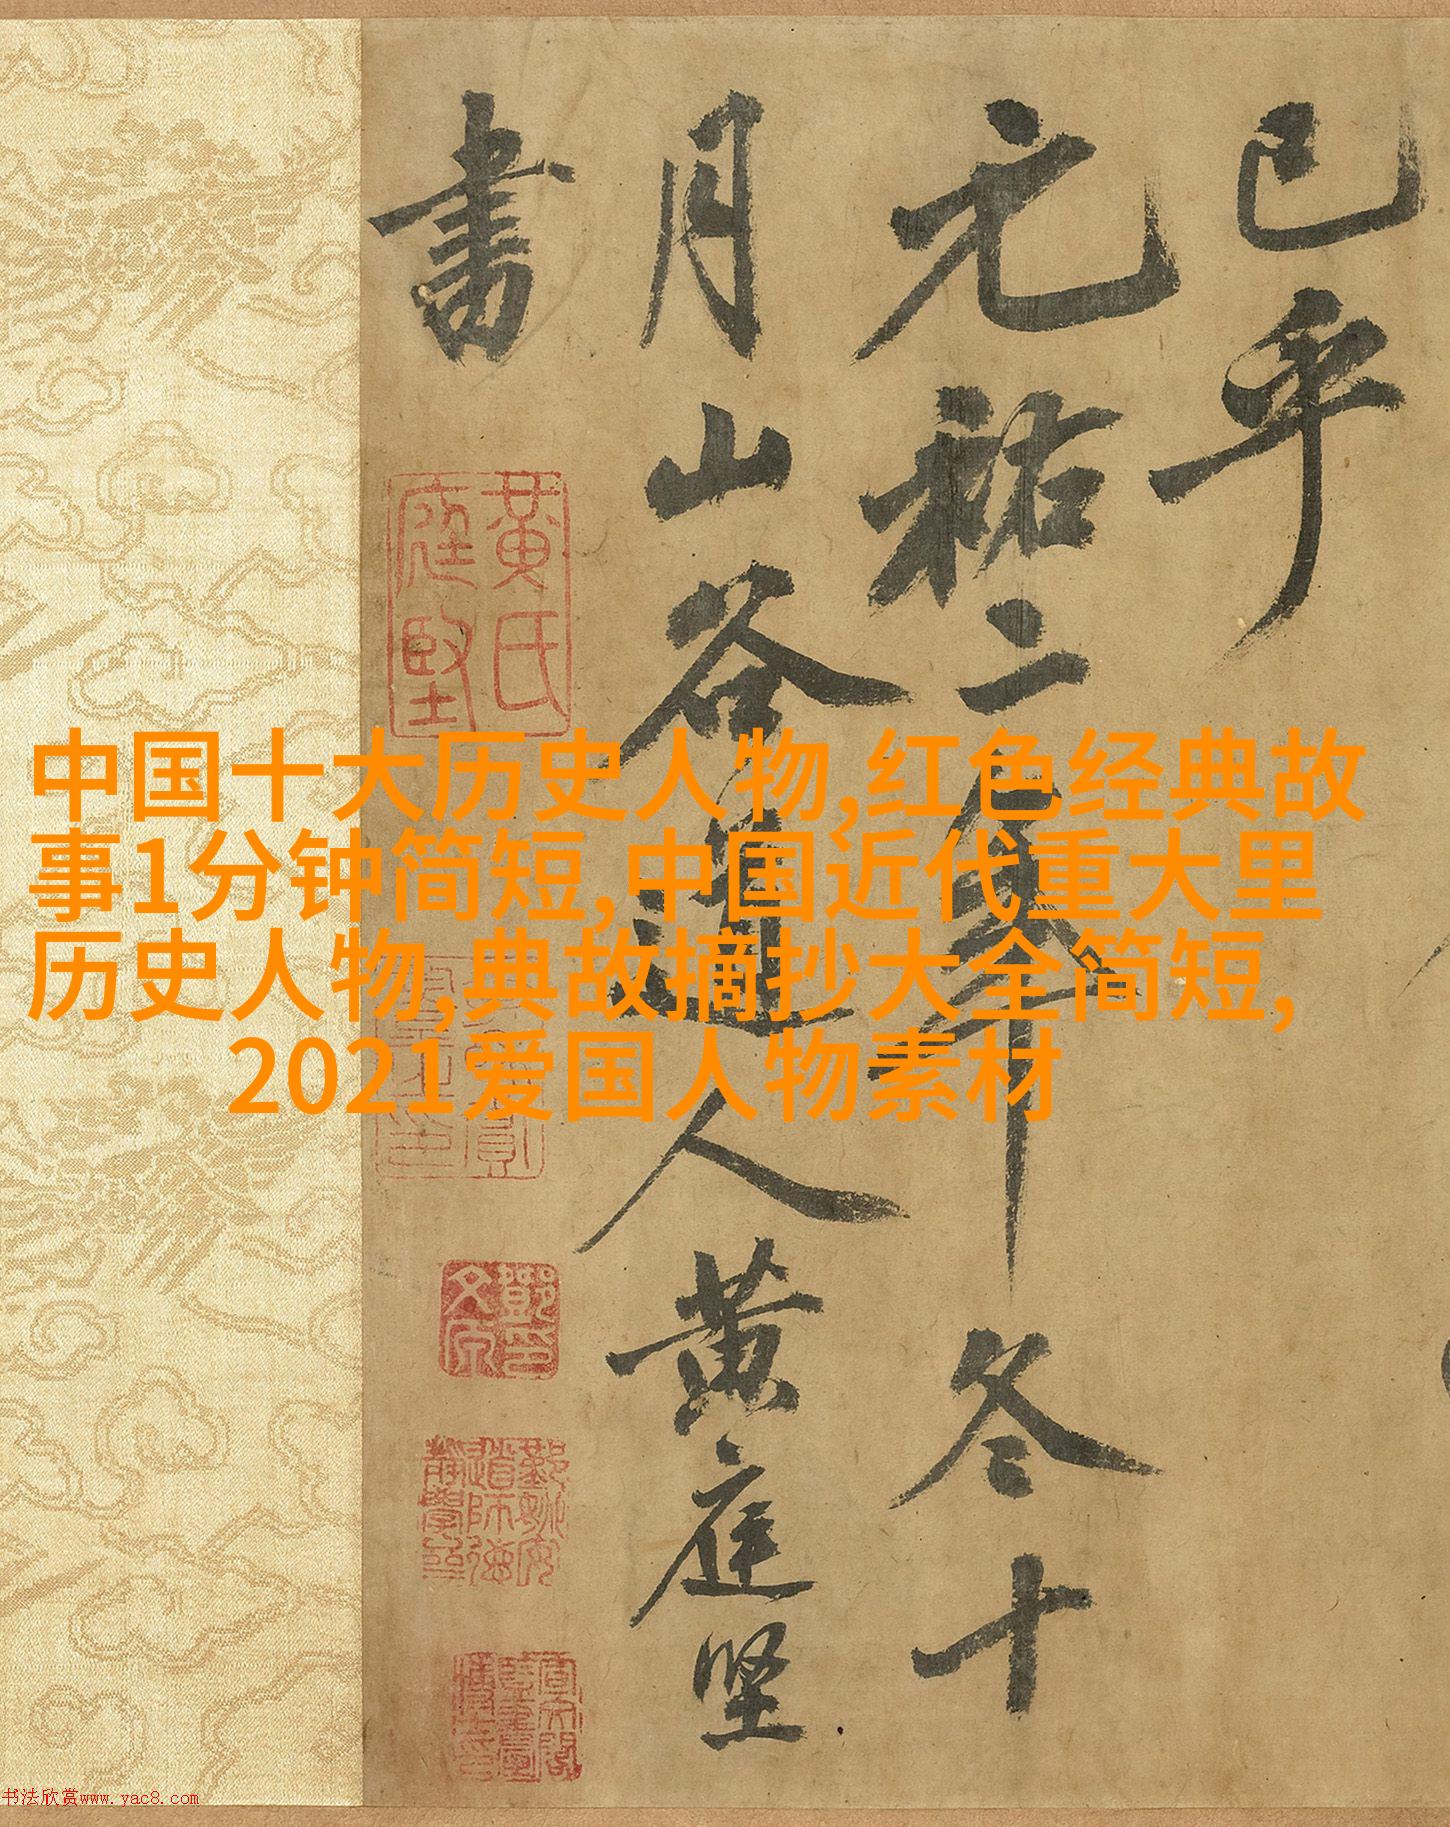 已乎
元祐二年冬十
月山谷道人黄庭坚
書
黄氏
庭堅
中国十大历史人物,红色经典故
事1分钟简短,中国近代重大里
历史人物,典故摘抄大全简短,
2021爱国人物素材
书法欣赏www.yac8.com